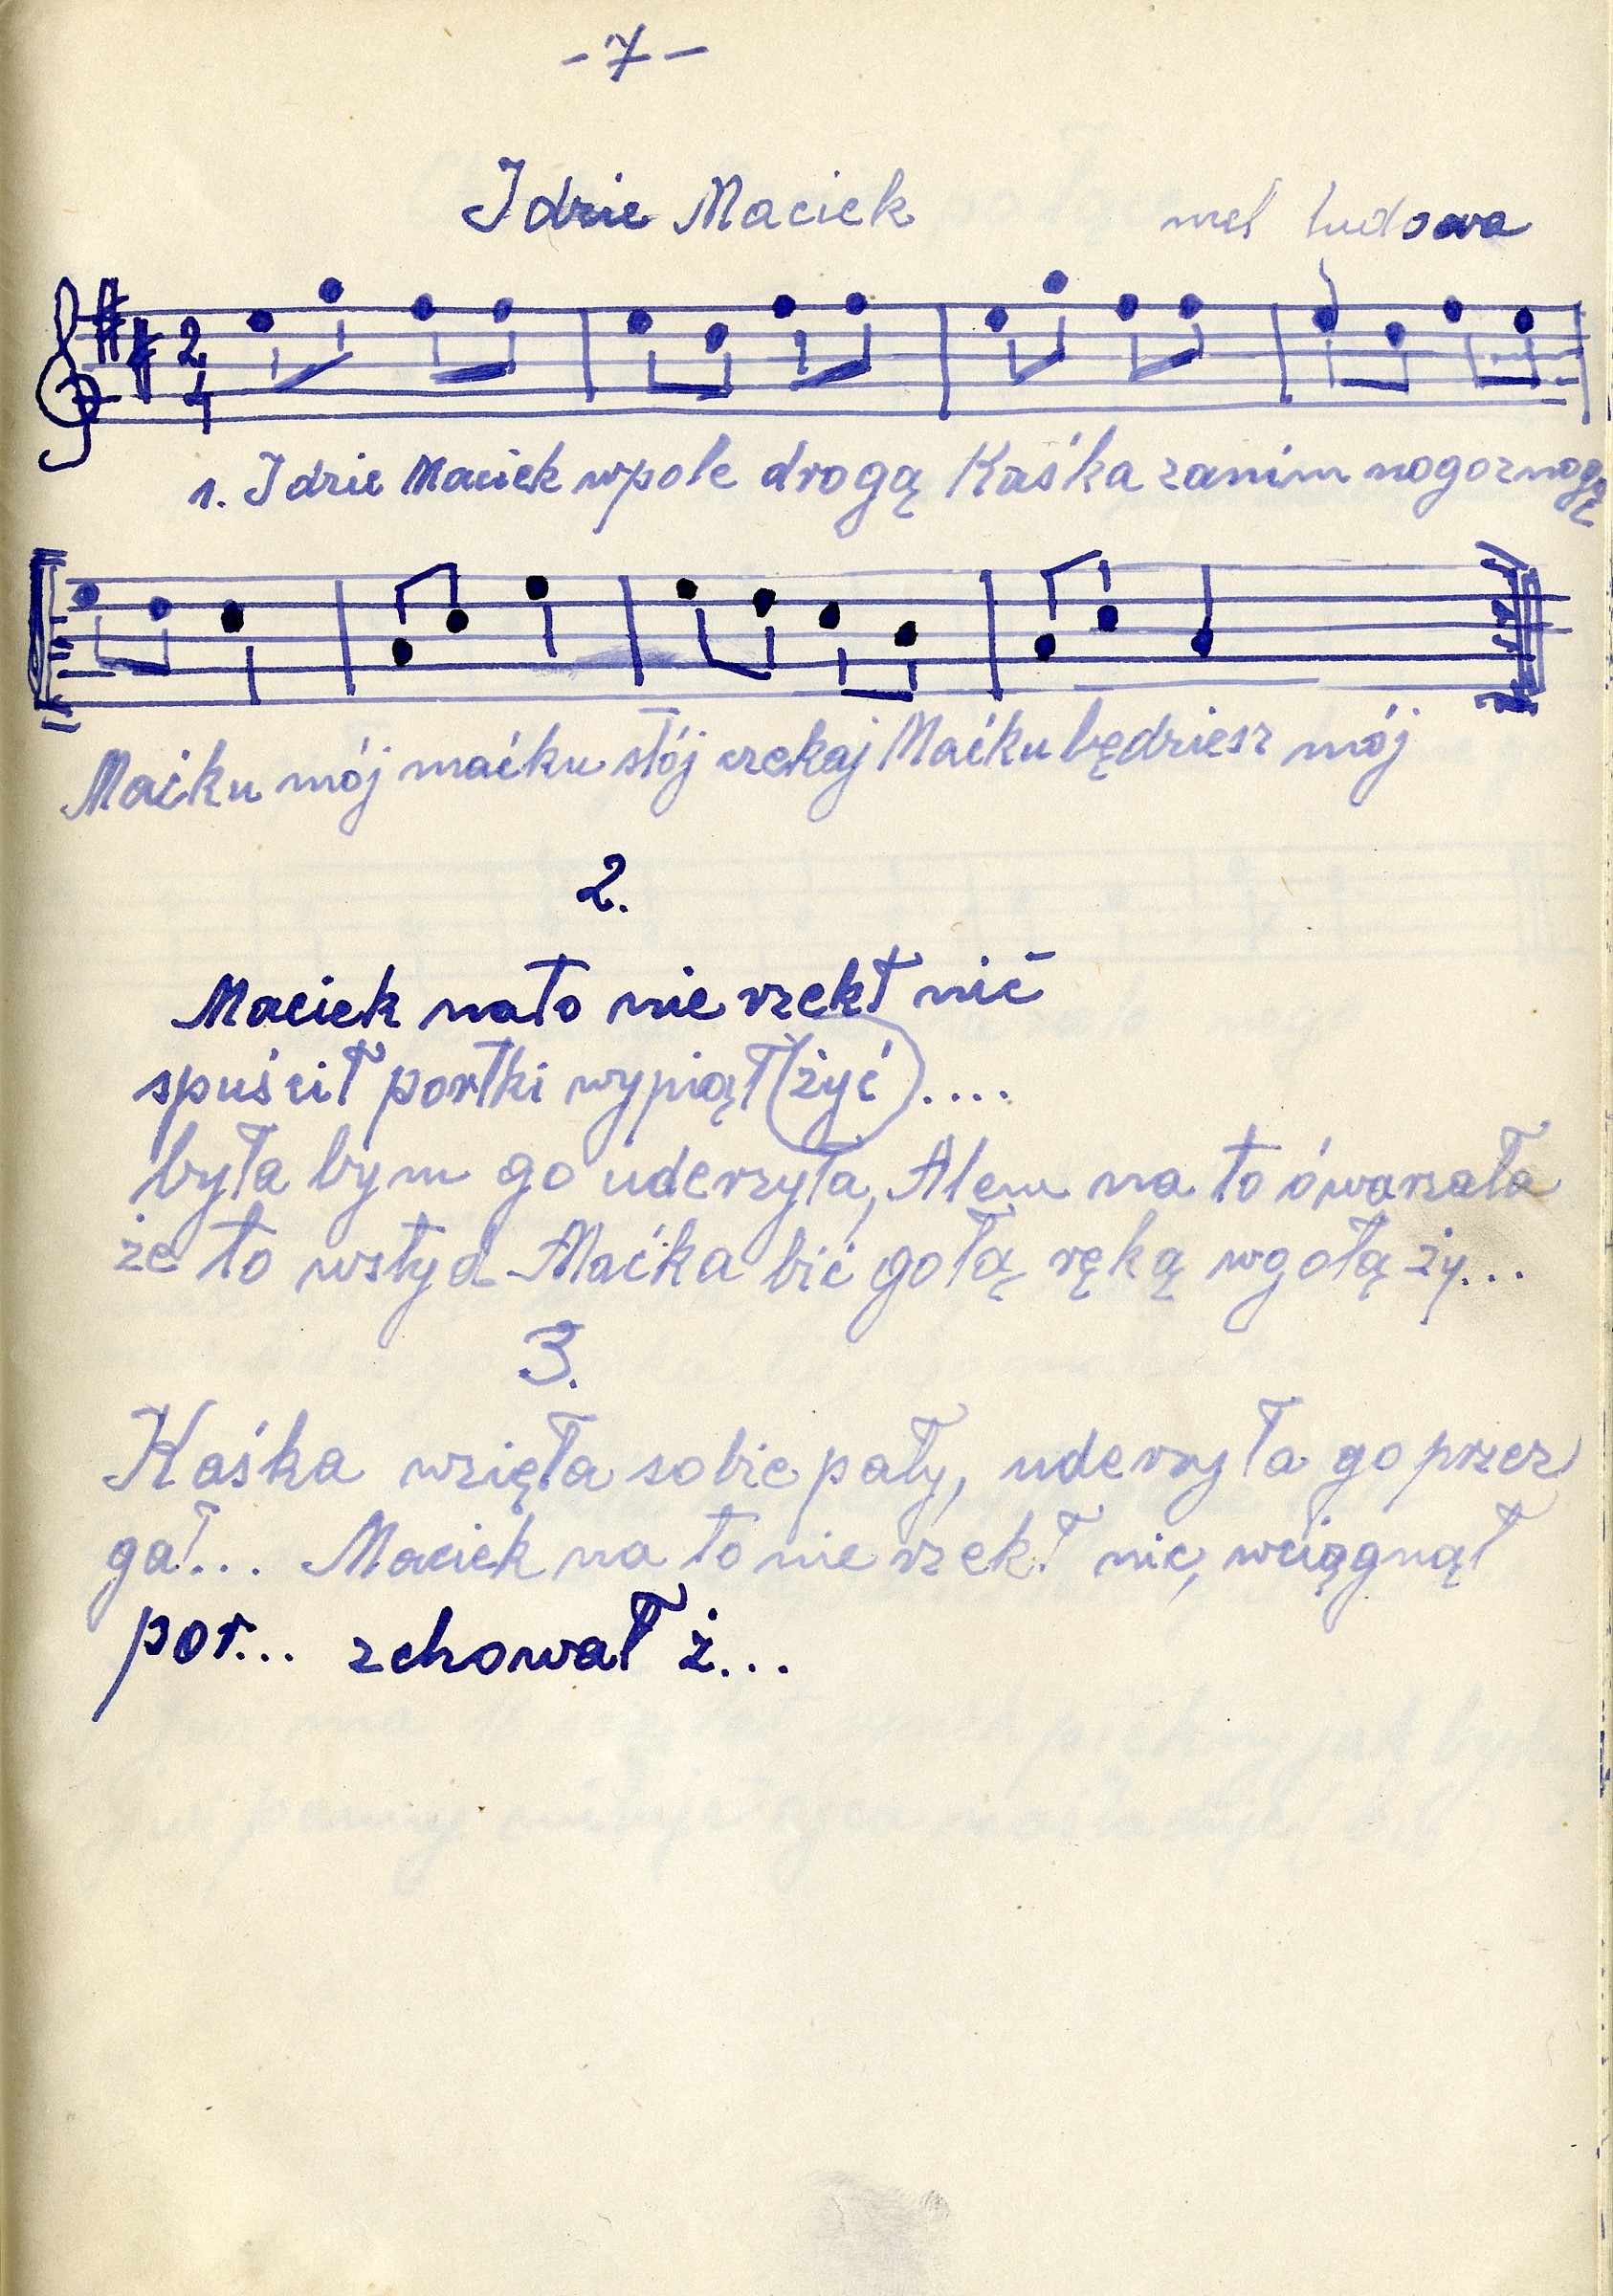 -7-
Idzie Maciek
mel ludowa
2
4
1. Idzie Maciek wpole drogą Kaśka zanim nogoznogą
Maćku mój maćku stój czekaj Maćku będziesz mój
2.
Maciek nato nie rzekł nić
spuścił portki wypiął (żyć)....
była bym go uderzyła, Alem na to ówarzała
że to wstyd Maćka bić gołą ręką wgołą ży...
3.
Kaśka wzięła sobie pały, uderzyła go przez
gał... Maciek na to nie rzekł nic, wciągnął
por... zchował ż...